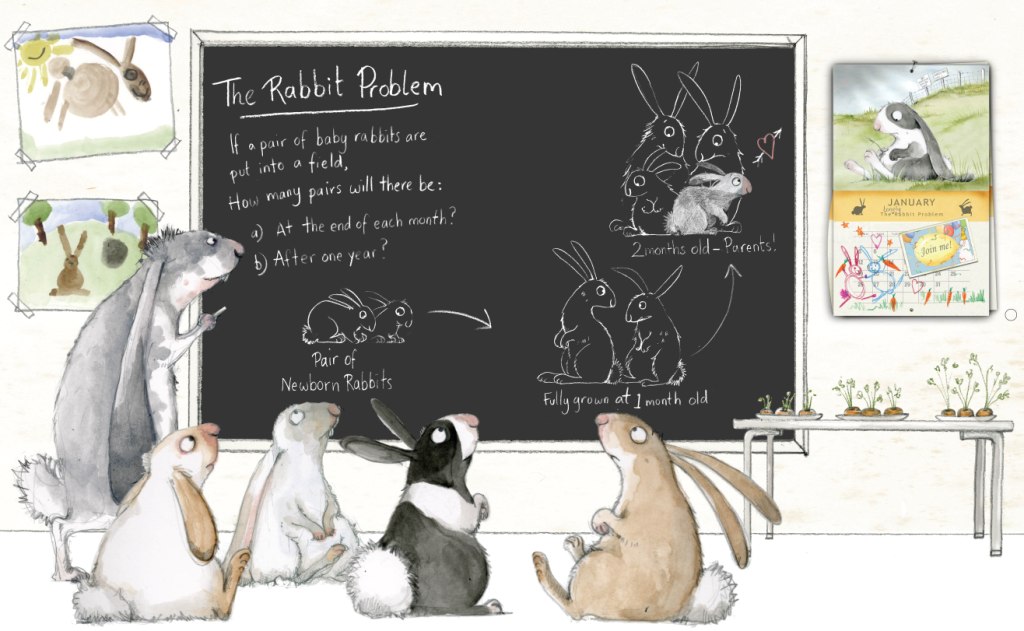 The Rabbit Problem
If a pair of baby rabbits are
put into a field,
How many pairs will there be:
a) At the end of each month?
b) After one year?
Pair of
Newborn Rabbits
Fully grown at 1 month old
2 months old - Parents!
JANUARY
Lonely
The Rabbit Problem
Join me!